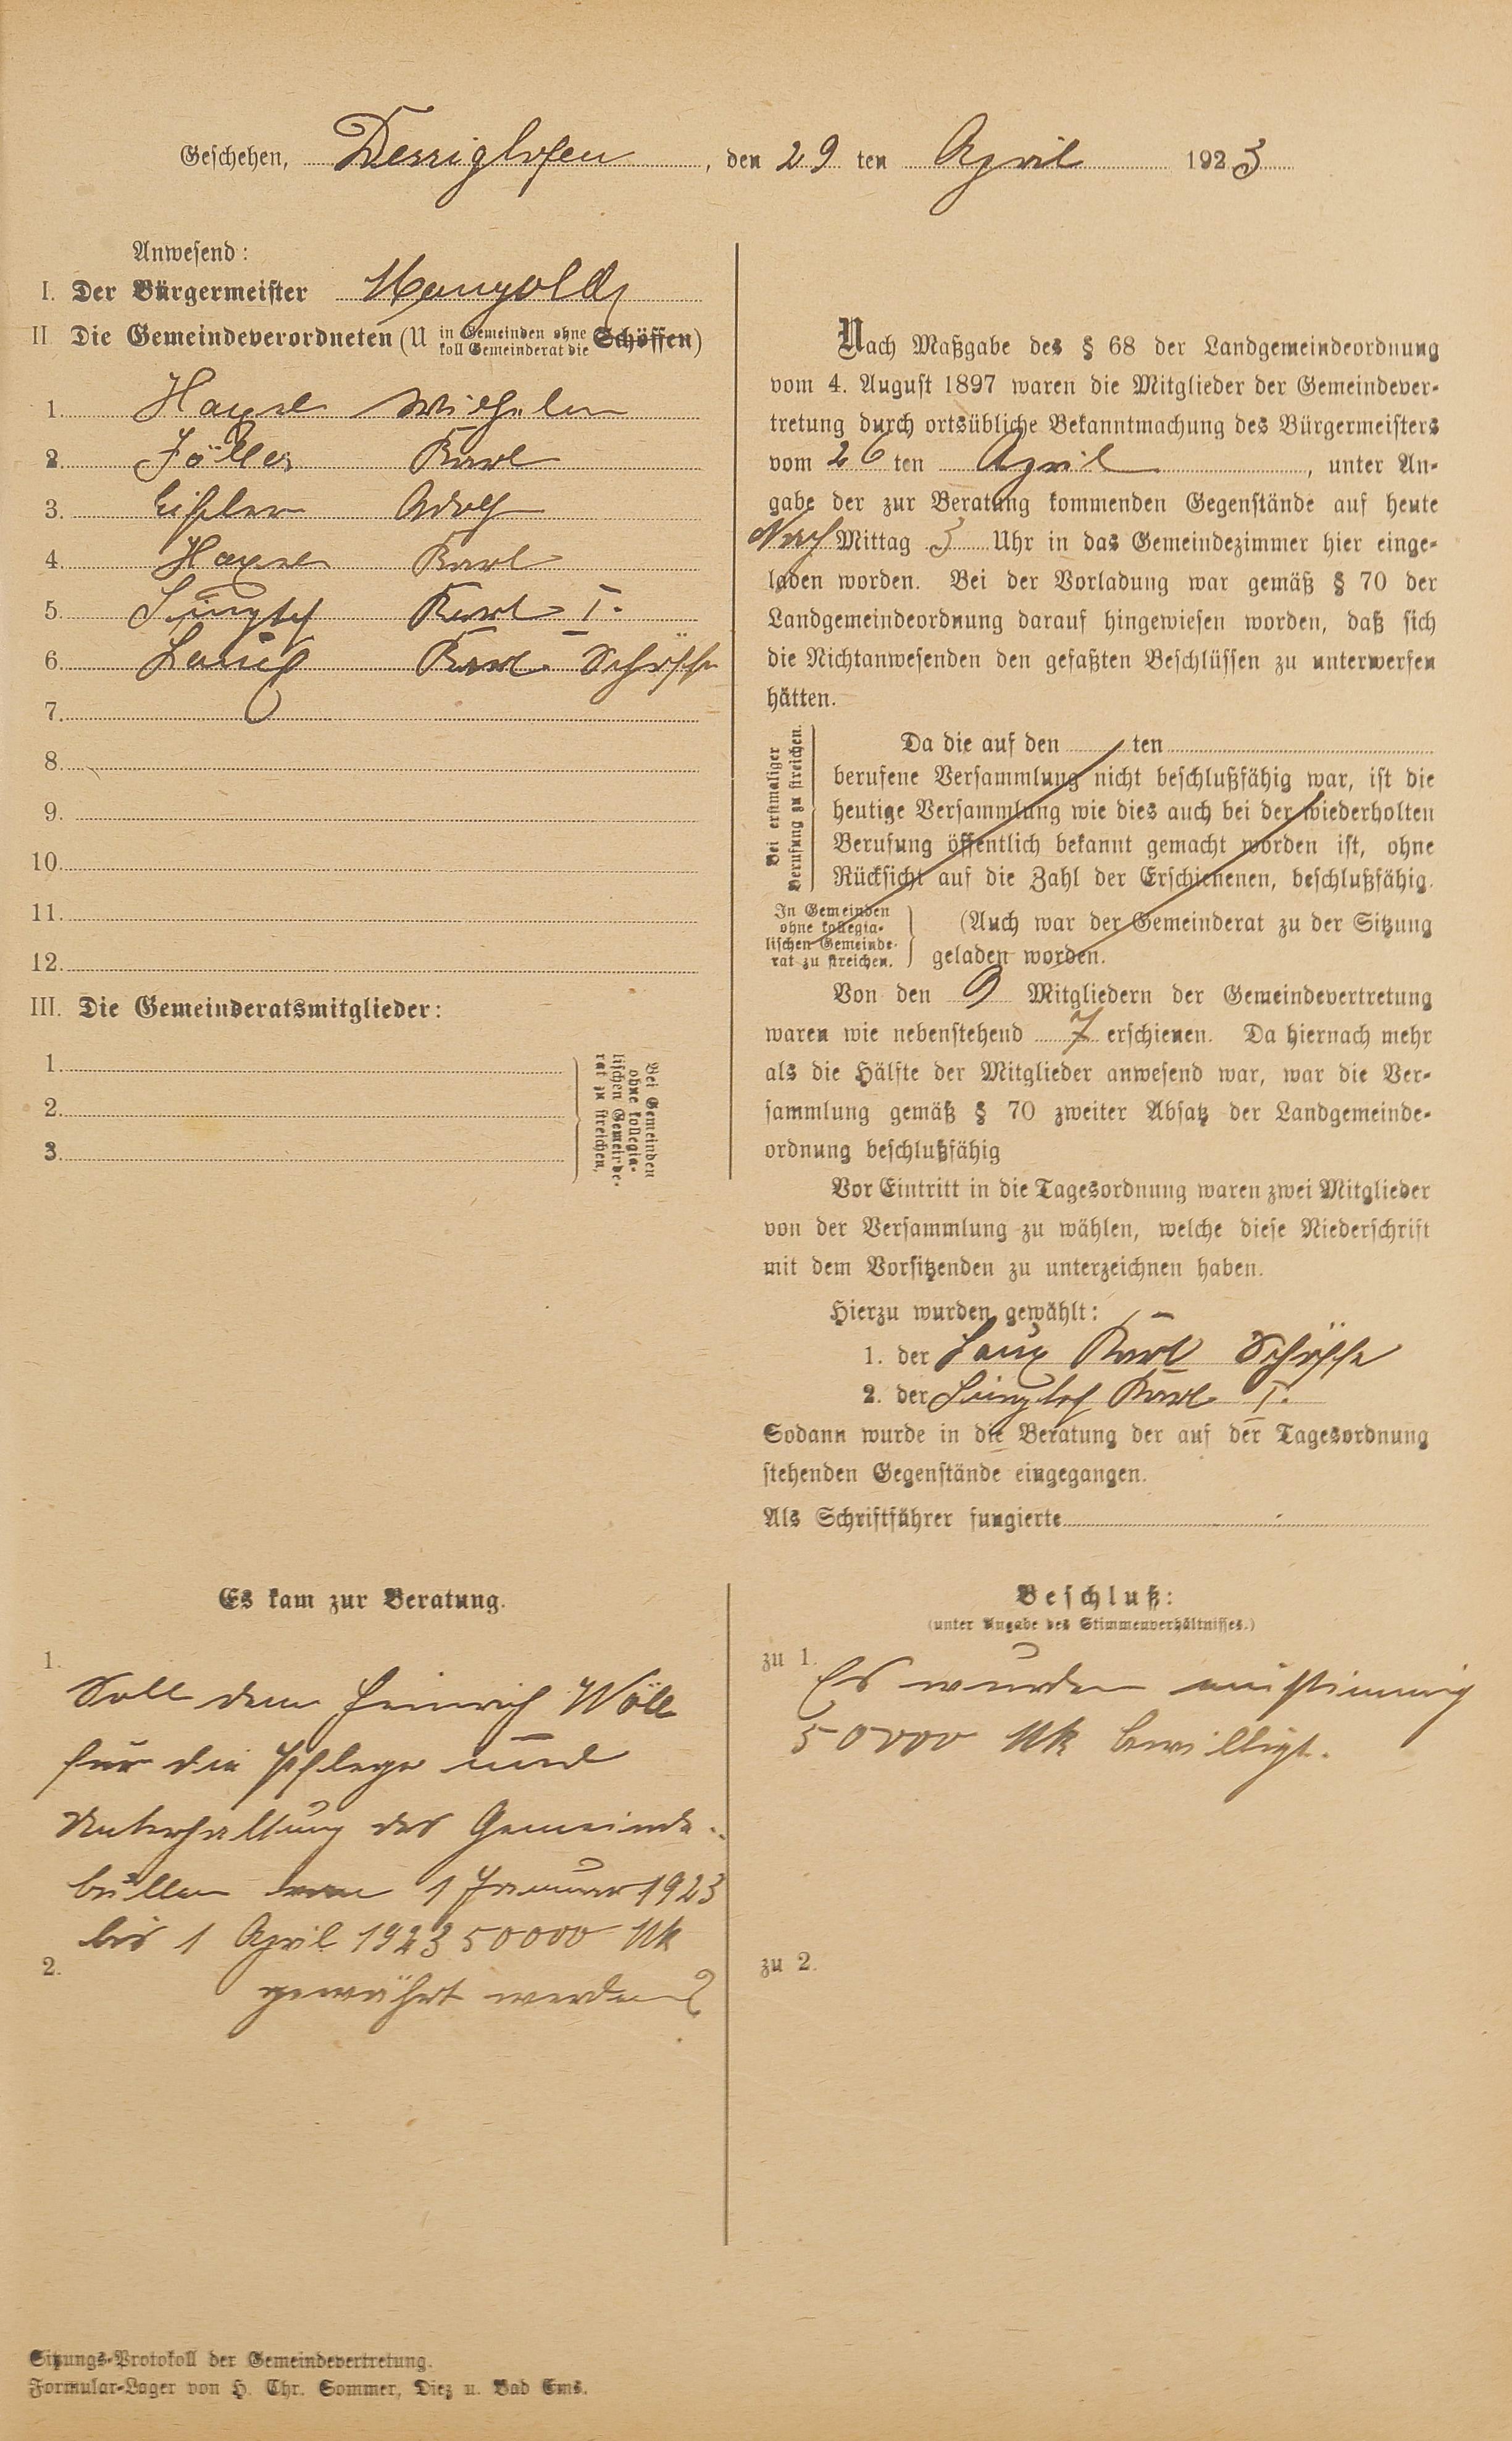 Geschehen, Dessighofen, den 29 ten April 1923
Anwesend:
I. Der Bürgermeister Mangold
II Die Gemeindeverordneten (U in Gemeinden ohne koll Gemeinderat die Schöffen)
1. Haxel Wilhelm
2. Föller Karl
3. Adolf
4. Haxel Karl
5. Karl I.
6. Karl Schöffe
7.
8.
9.
10.
11.
12.
III. Die Gemeinderatsmitglieder:
1.
2.
3.
Bei Gemeinden
ohne kollegia-
lischen Gemeinde-
rat zu streichen.
Nach Maßgabe des § 68 der Landgemeindeordnung
vom 4. August 1897 waren die Mitglieder der Gemeindever-
tretung durch ortsübliche Bekanntmachung des Bürgermeisters
vom 26 ten April, unter An-
gabe der zur Beratung kommenden Gegenstände auf heute
Nach Mittag 3 Uhr in das Gemeindezimmer hier einge-
laden worden. Bei der Vorladung war gemäß § 70 der
Landgemeindeordnung darauf hingewiesen worden, daß sich
die Nichtanwesenden den gefaßten Beschlüssen zu unterwerfen
hätten.
Bei erstmaliger
Berufung zu streichen.
Da die auf den ten
berufene Versammlung nicht beschlußfähig war, ist die
heutige Versammlung wie dies auch bei der wiederholten
Berufung öffentlich bekannt gemacht worden ist, ohne
Rücksicht auf die Zahl der Erschienenen, beschlußfähig.
In Gemeinden
ohne kollegia-
lischen Gemeinde-
rat zu streichen.
(Auch war der Gemeinderat zu der Sitzung
geladen worden.
Von den 9 Mitgliedern der Gemeindevertretung
waren wie nebenstehend 7 erschienen. Da hiernach mehr
als die Hälfte der Mitglieder anwesend war, war die Ver-
sammlung gemäß § 70 zweiter Absatz der Landgemeinde-
ordnung beschlußfähig
Vor Eintritt in die Tagesordnung waren zwei Mitglieder
von der Versammlung zu wählen, welche diese Niederschrift
mit dem Vorsitzenden zu unterzeichnen haben.
Hierzu wurden gewählt:
1. der Laux Karl Schöffe
2. der Karl I.
Sodann wurde in die Beratung der auf der Tagesordnung
stehenden Gegenstände eingegangen.
Als Schriftführer fungierte
Es kam zur Beratung.
1.
Soll dem Heinrich Wöll
für die Pflege und
Unterhaltung des Gemeinde-
bullen vom 1 Januar 1923
bis 1 April 1923 50000 Mk
2.
gewährt werden?
Beschluß:
(unter Angabe des Stimmenverhältnisses.)
zu 1.
Es wurden einstimmig
50000 Mk bewilligt.
zu 2.
Sitzungs-Protokoll der Gemeindevertretung.
Formular-Lager von H. Chr. Sommer, Diez u. Bad Ems.